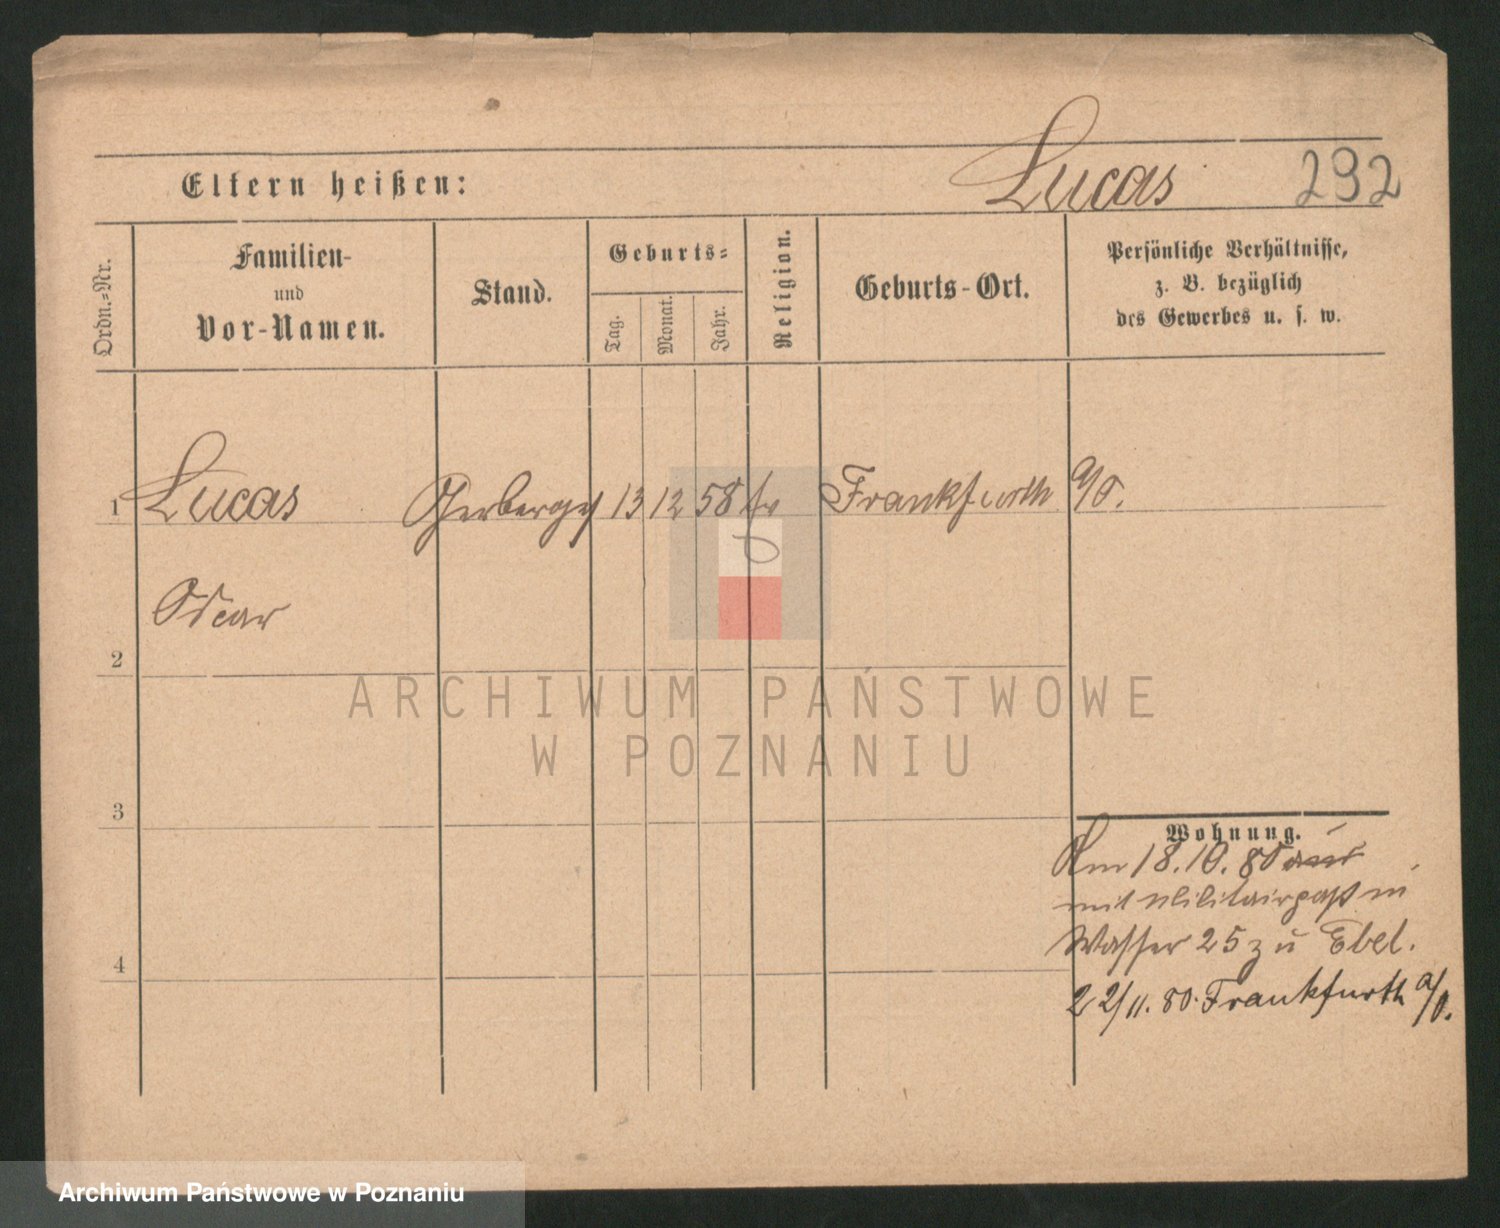 Eltern heißen:
Lucas
292
Ordn.-Nr.
Familien-
und
Vor-Namen.
Stand.
Geburts-
Tag.
Monat.
Jahr.
Religion.
Geburts-Ort.
Persönliche Verhältnisse,
z. B. bezüglich
des Gewerbes u. s. w.
1 Lucas 13 12 58 Frankfurth a/O.
Oscar
2
ARCHIWUM PAŃSTWOWE
W POZNANIU
3
Wohnung.
Am 18.10.80 aus
mit Militairpaß in
Wasser 25 zu Ebel.
4
22/11. 80. Frankfurth a/O.
Archiwum Państwowe w Poznaniu